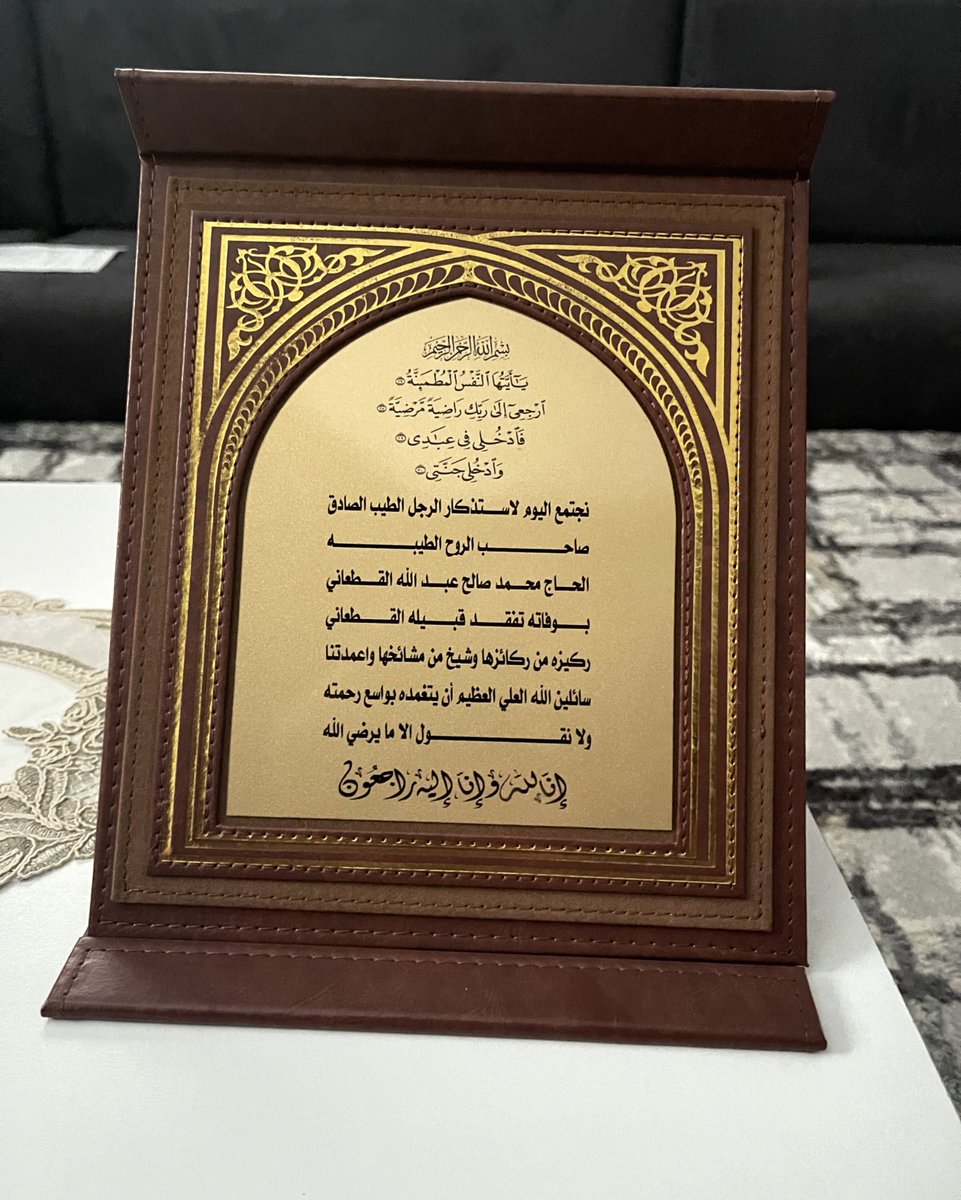 بسم الله الرحمن الرحيم
يَٰٓأَيَّتُهَا ٱلنَّفْسُ ٱلْمُطْمَئِنَّةُ ۝٢٧
ٱرْجِعِىٓ إِلَىٰ رَبِّكِ رَاضِيَةً مَّرْضِيَّةً ۝٢٨
فَٱدْخُلِى فِى عِبَٰدِى ۝٢٩
وَٱدْخُلِى جَنَّتِى ۝٣٠
نجتمع اليوم لاستذكار الرجل الطيب الصادق
صاحب الروح الطيبه
الحاج محمد صالح عبد الله القطعاني
بوفاته تفقد قبيله القطعاني
ركيزه من ركائزها وشيخ من مشائخها واعمدتنا
سائلين الله العلي العظيم أن يتغمده بواسع رحمته
ولا نقول الا ما يرضي الله
إنا لله وإنا إليه راجعون